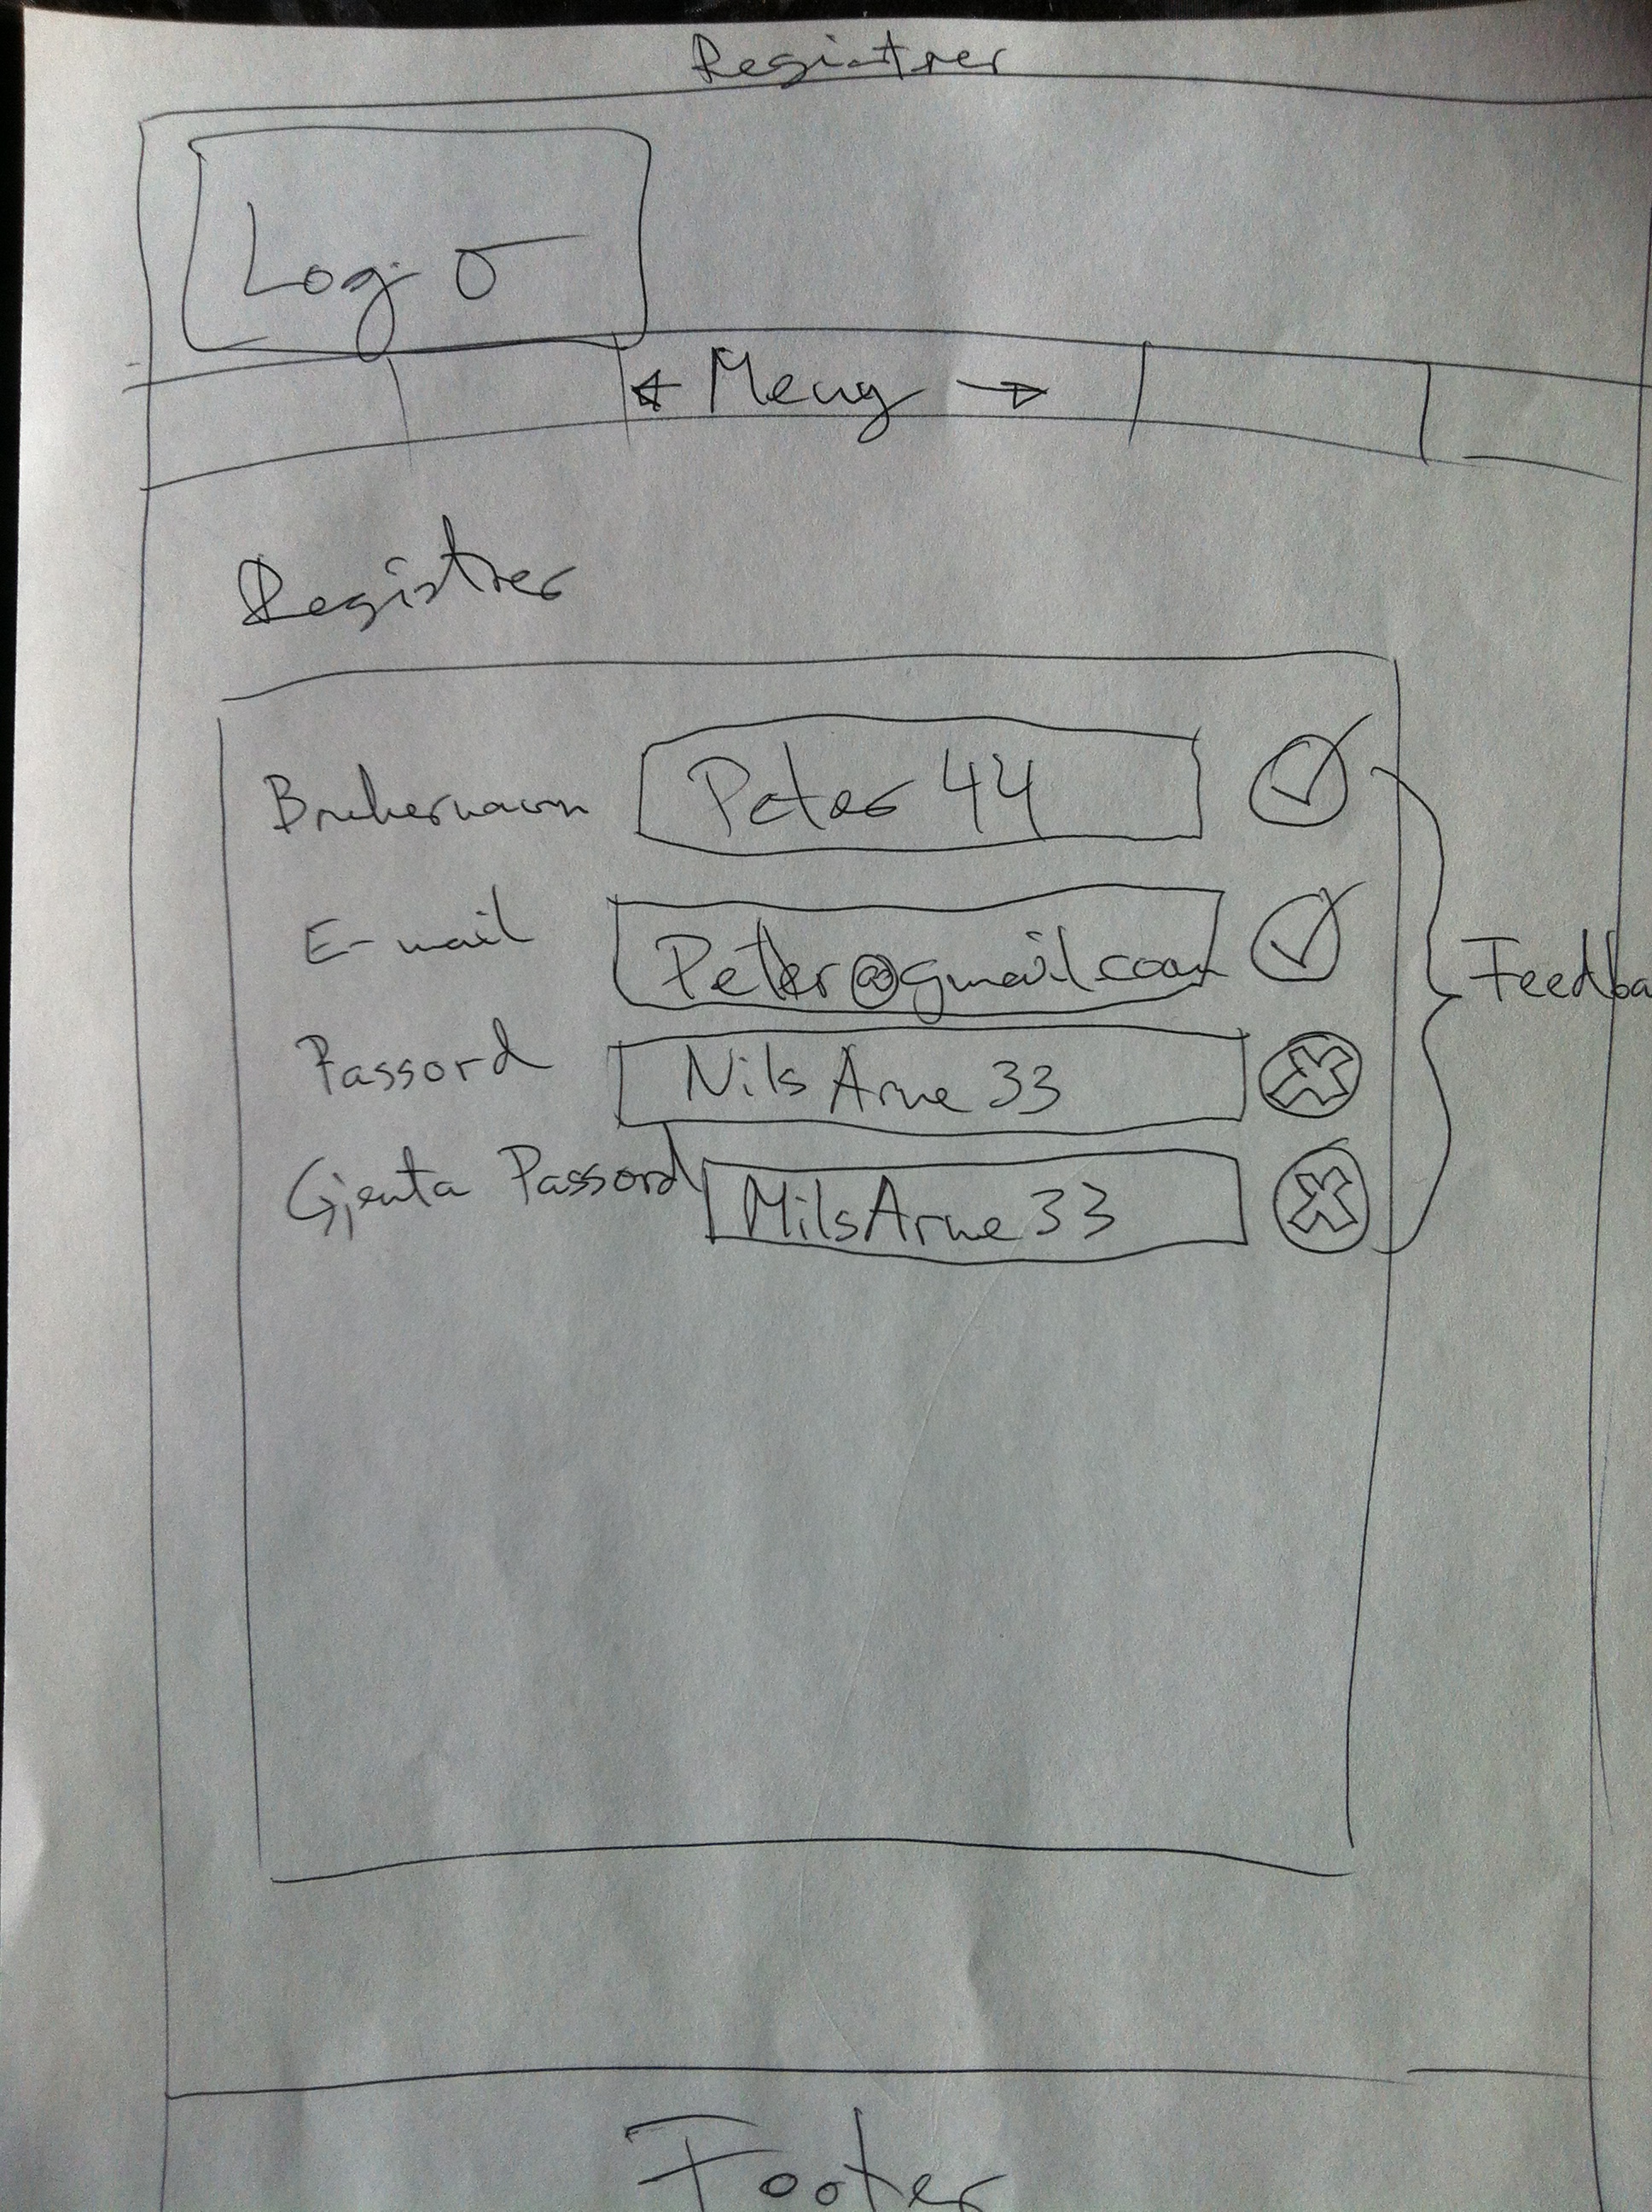 Registrer
Logo
Meny
Registrer
Brukernavn Peter 44
E-mail Peter@gmail.com
Feedba
Passord Nils Arne 33
Gjenta Passord MilsArne 33
Footer